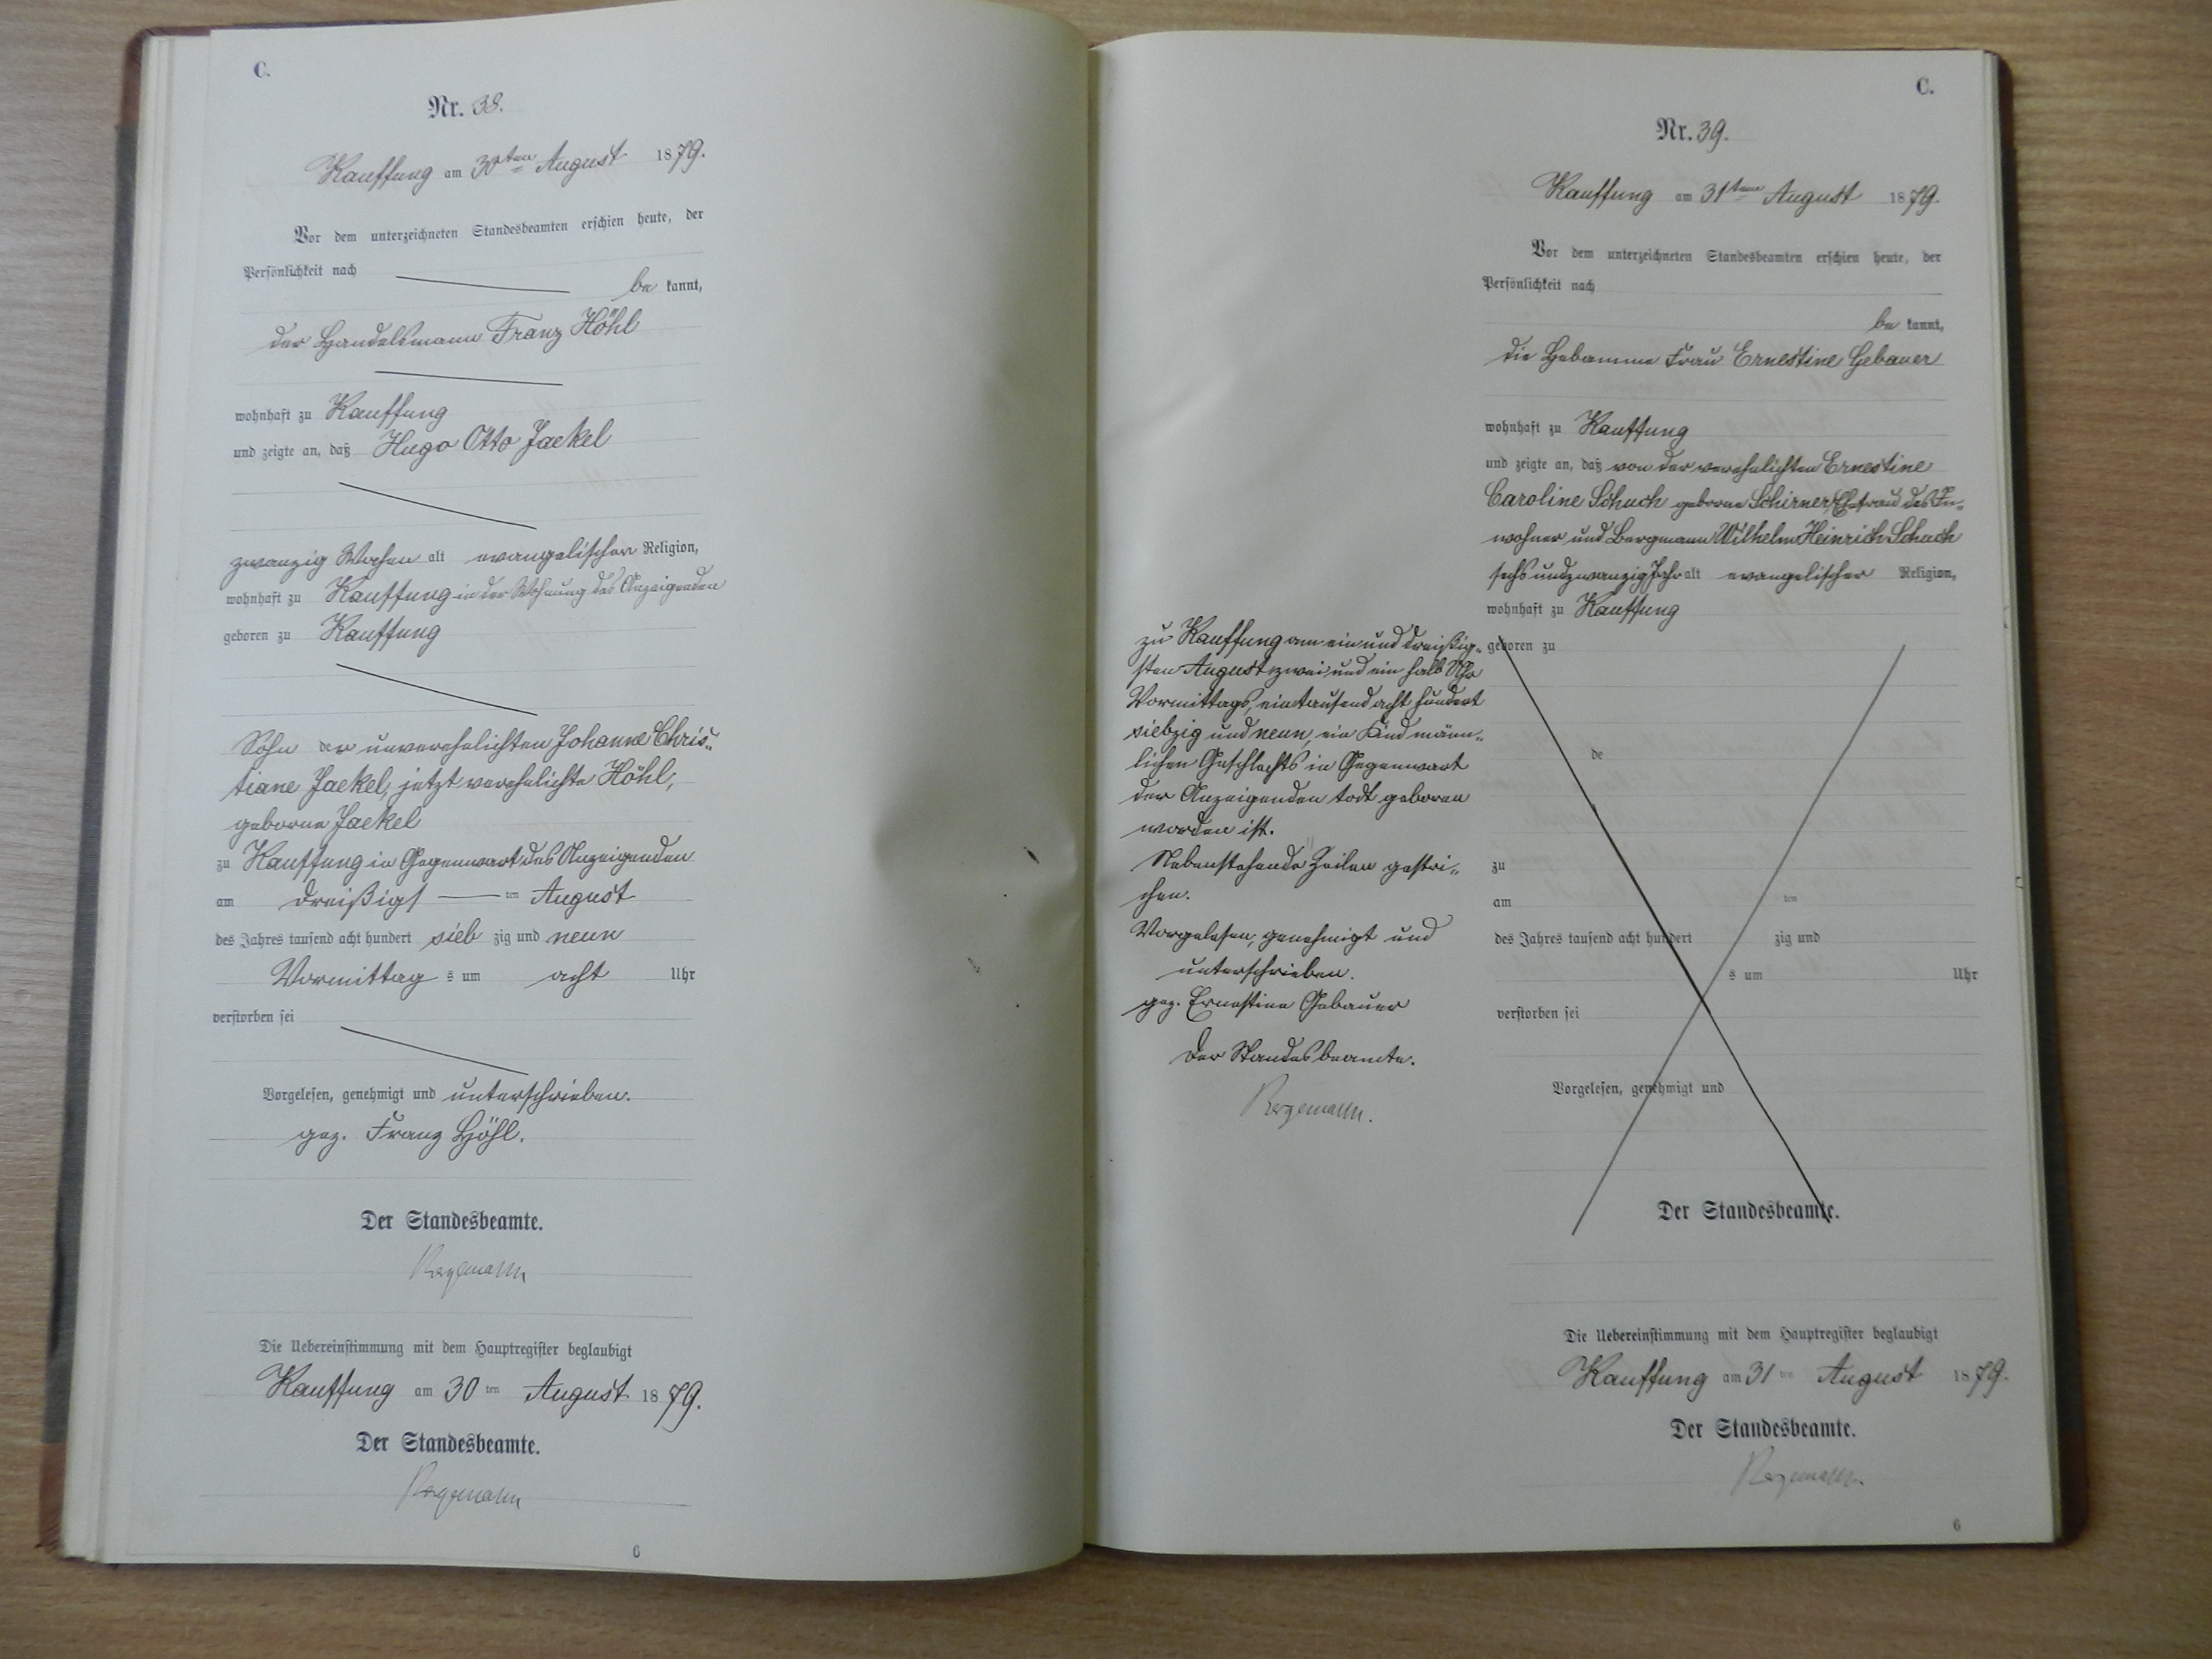 C.
Nr. 38.
Kauffung am 30ten August 1879.
Vor dem unterzeichneten Standesbeamten erschien heute, der
Persönlichkeit nach
be kannt,
der Handelsmann Franz Höhl
wohnhaft zu Kauffung
und zeigte an, daß Hugo Otto Jaekel
zwanzig Wochen alt evangelischer Religion,
wohnhaft zu Kauffung in der Wohnung des Anzeigenden
geboren zu Kauffung
Sohn der unverehelichten Johanne Chris-
tiane Jaekel, jetzt verehelichte Höhl,
geborne Jaekel
zu Kauffung in Gegenwart des Anzeigenden
am dreißigst ten August
des Jahres tausend acht hundert sieb zig und neun
Vormittag s um acht Uhr
verstorben sei
Vorgelesen, genehmigt und unterschrieben.
gez. Franz Höhl.
Der Standesbeamte.
Die Uebereinstimmung mit dem Hauptregister beglaubigt
Kauffung am 30 ten August 1879.
Der Standesbeamte.
6
C.
Nr. 39.
Kauffung am 31ten August 1879.
Vor dem unterzeichneten Standesbeamten erschien heute, der
Persönlichkeit nach
be kannt,
die Hebamme Frau Ernestine Gebauer
wohnhaft zu Kauffung
und zeigte an, daß von der verehelichten Ernestine
Caroline Schuch geborne Schirner, Ehefrau des In-
wohner und Bergmann Wilhelm Heinrich Schuch
sechsundzwanzig Jahr alt evangelischer Religion,
wohnhaft zu Kauffung
zu Kauffung am ein und dreißig-
sten August zwei und ein halb Uhr
Vormittags, eintausend acht hundert
siebzig und neun, ein Kind männ-
lichen Geschlechts in Gegenwart
der Anzeigenden todt geboren
worden ist.
Nebenstehende Zeilen gestri-
chen.
Vorgelesen, genehmigt und
unterschrieben.
gez. Ernestine Gebauer
Der Standesbeamte.
geboren zu
de
zu
am ten
des Jahres tausend acht hundert zig und
s um Uhr
verstorben sei
Vorgelesen, genehmigt und
Der Standesbeamte.
Die Uebereinstimmung mit dem Hauptregister beglaubigt
Kauffung am 31 ten August 1879.
Der Standesbeamte.
6